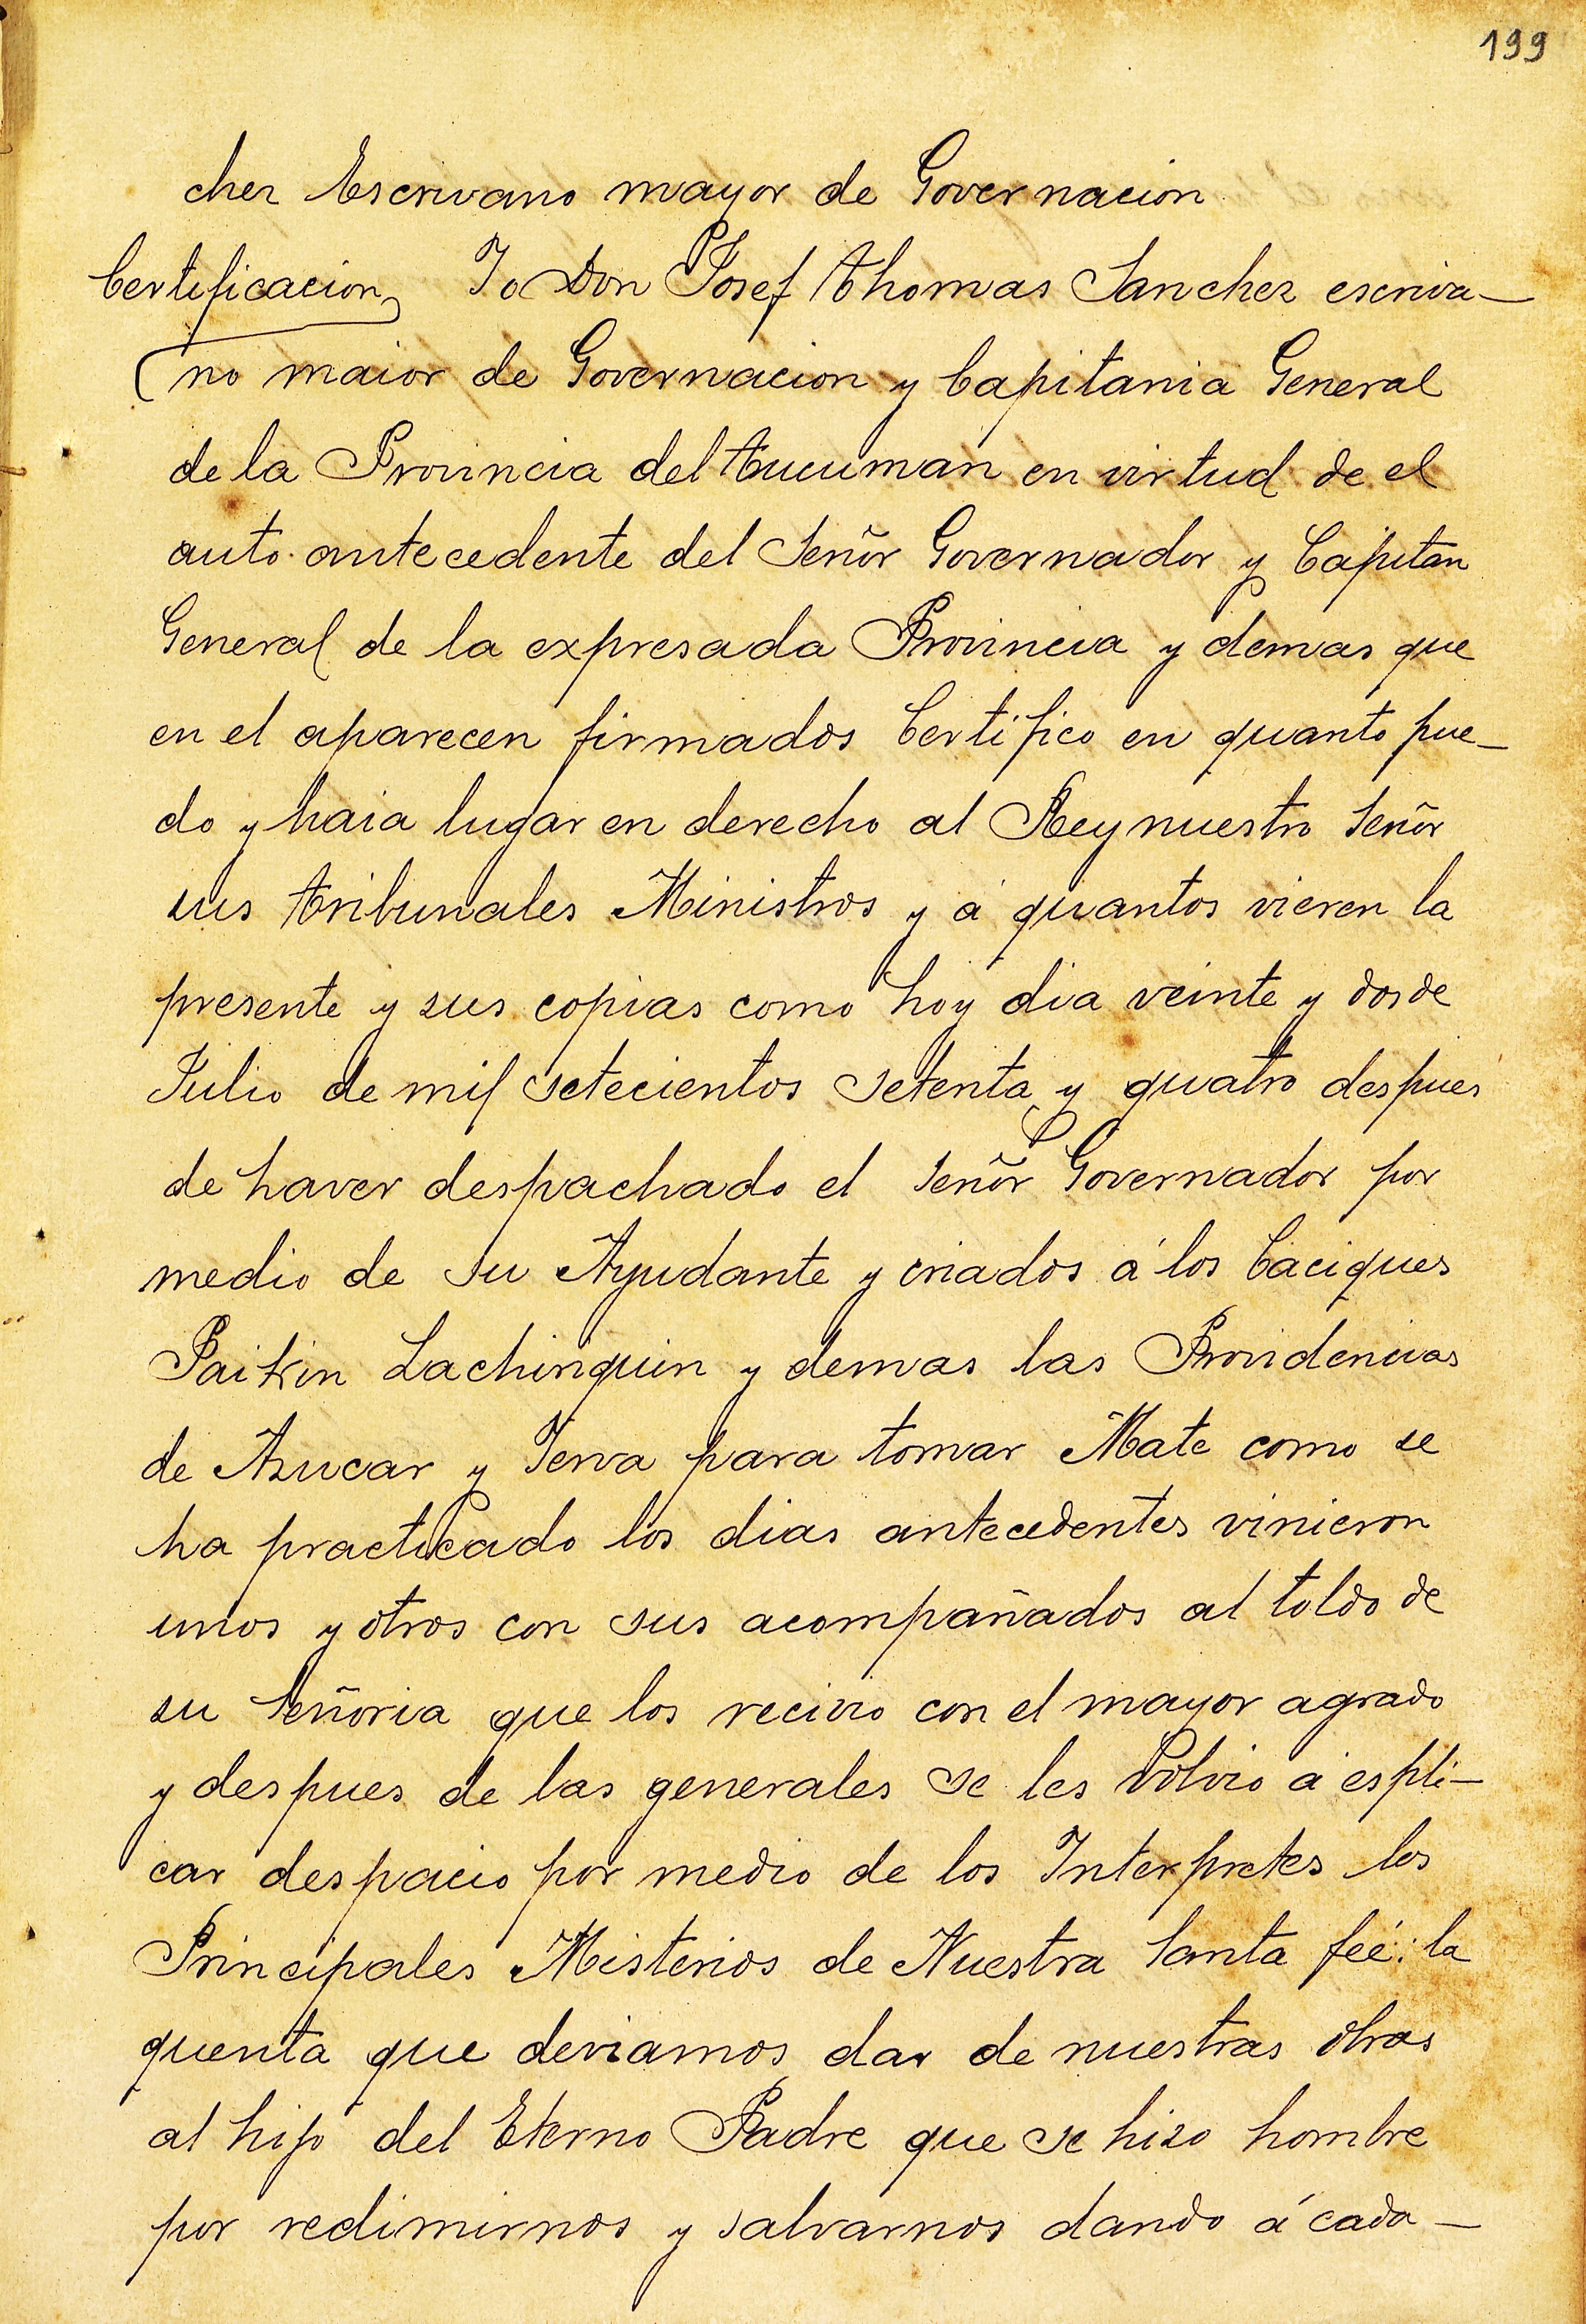 199
chez Escrivano mayor de Governacion
Certificacion Yo Don Josef Thomas Sanchez escriva-
no maior de Governacion y Capitania General
de la Provincia del Tucuman en virtud de el
auto antecedente del Señor Governador y Capitan
General de la expresada Provincia y demas que
en el aparecen firmados Certifico en quanto pue-
do y haia lugar en derecho al Rey nuestro Señor
sus tribunales Ministros y á quantos vieren la
presente y sus copias como hoy dia veinte y dos de
Julio de mil setecientos setenta y quatro despues
de haver despachado el Señor Governador por
medio de su Ayudante y criados á los Caciques
Paikin Lachinquin y demas las Providencias
de Azucar y Yerva para tomar Mate como se
ha practicado los dias antecedentes vinieron
unos y otros con sus acompañados al toldo de
su Señoria que los recivio con el mayor agrado
y despues de las generales se les volvio á espli-
car despacio por medio de los Interpretes los
Principales Misterios de Nuestra Santa feé: la
quenta que deviamos dar de nuestras obras
al hijo del Eterno Padre que se hizo hombre
por redimirnos y salvarnos dando á cada-